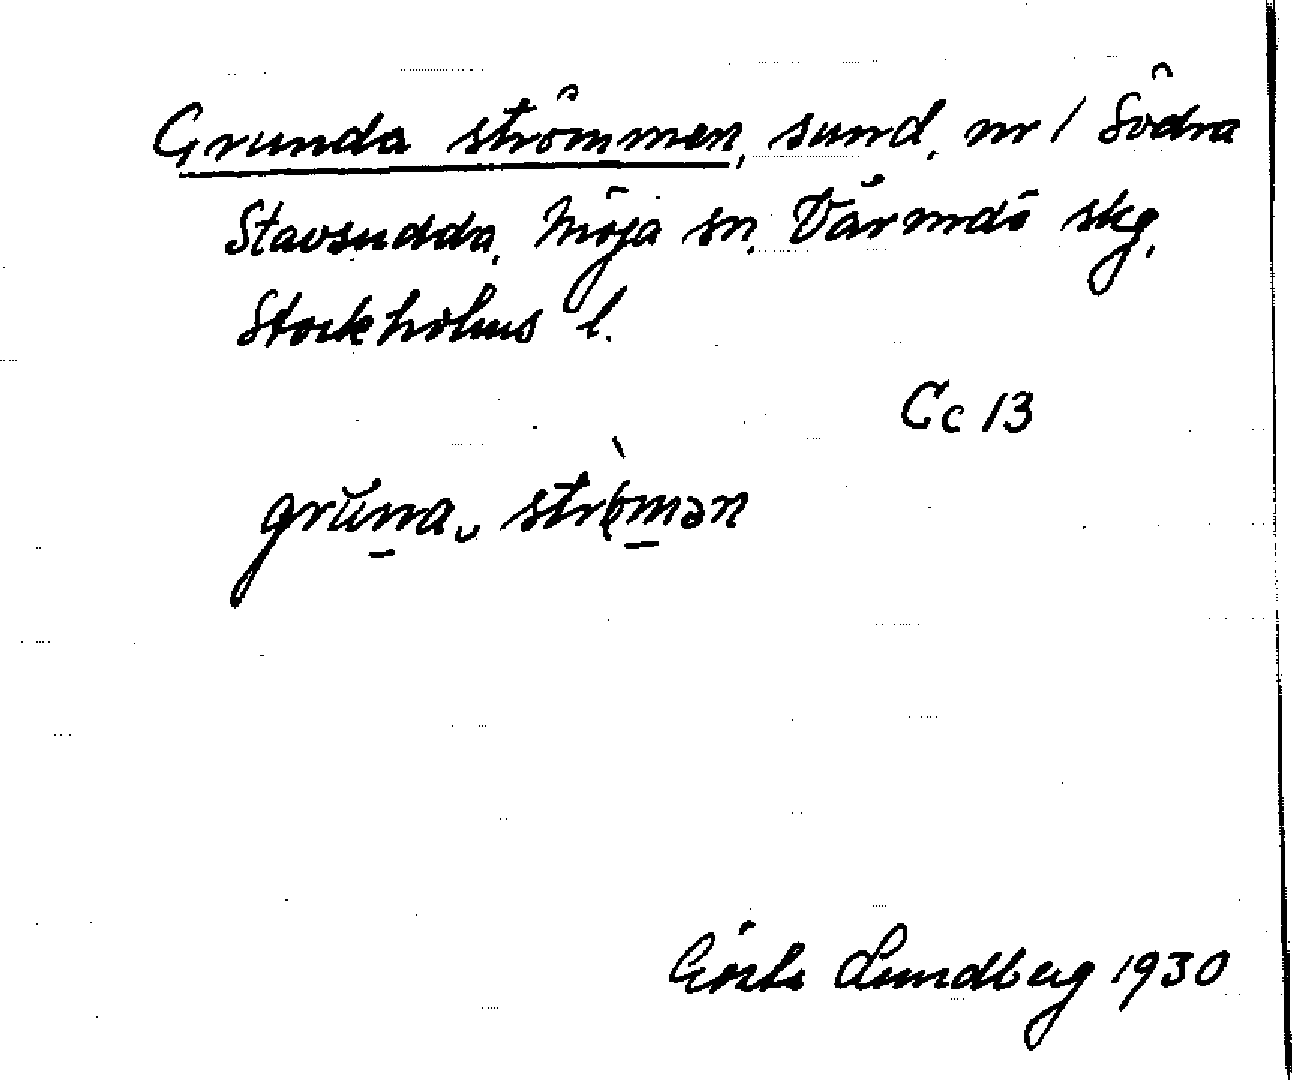 Grunda strömmen, sund, nr 1 Södra
Stavsudda, Möja sn, Värmdö skg,
Stockholms l.
Cc 13
grŭna strömən
Gösta Lundberg 1930